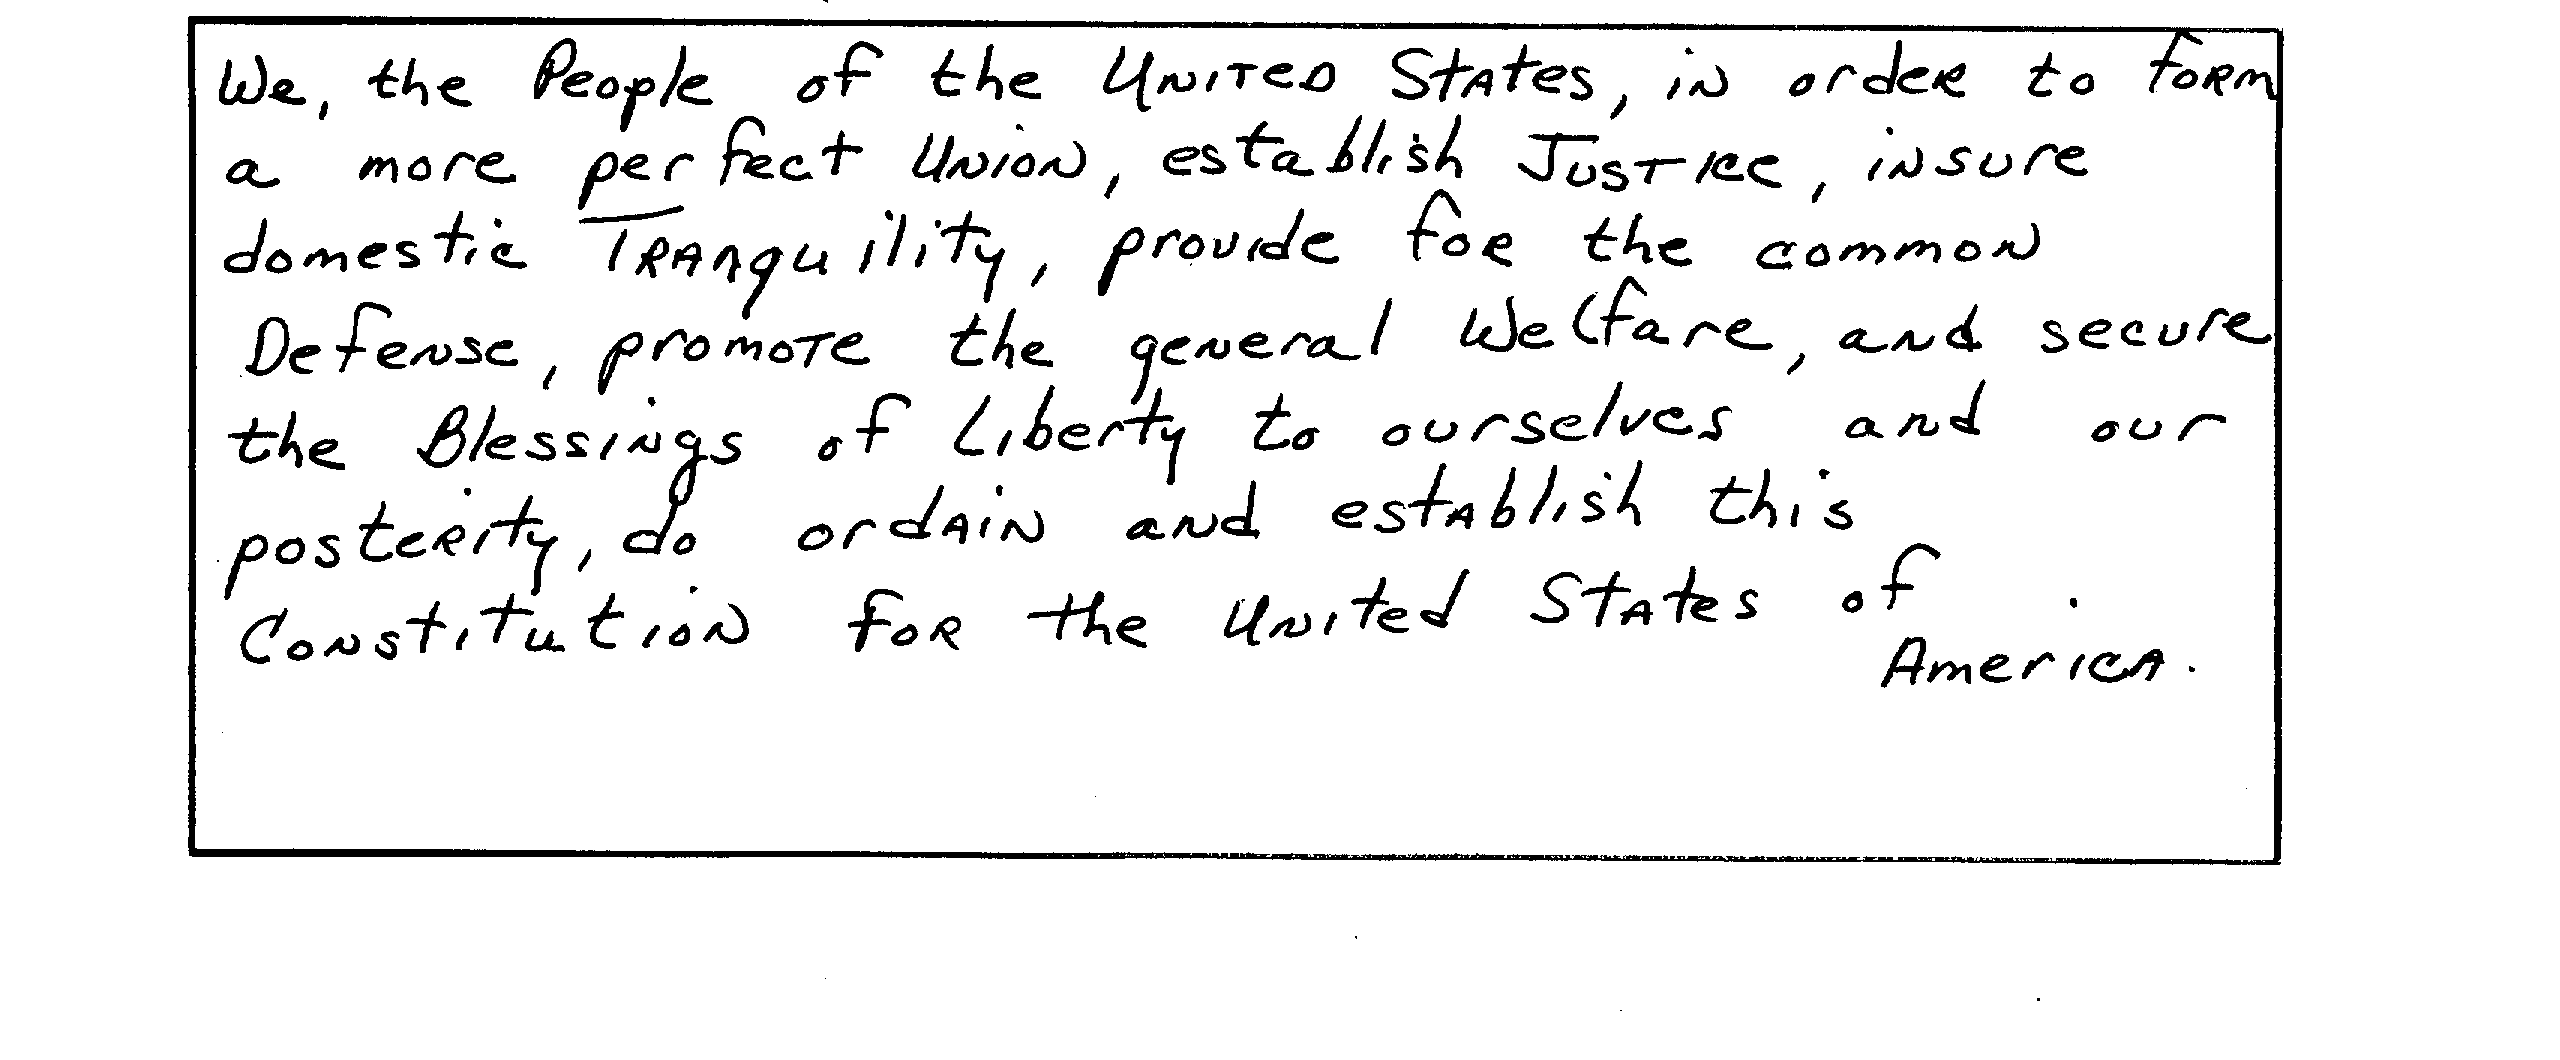 We, the People of the United States, in order to form
a more perfect Union, establish Justice, insure
domestic Tranquility, provide for the common
Defense, promote the general Welfare, and secure
the Blessings of Liberty to ourselves and our
posterity, do ordain and establish this
Constitution for the United States of
America.